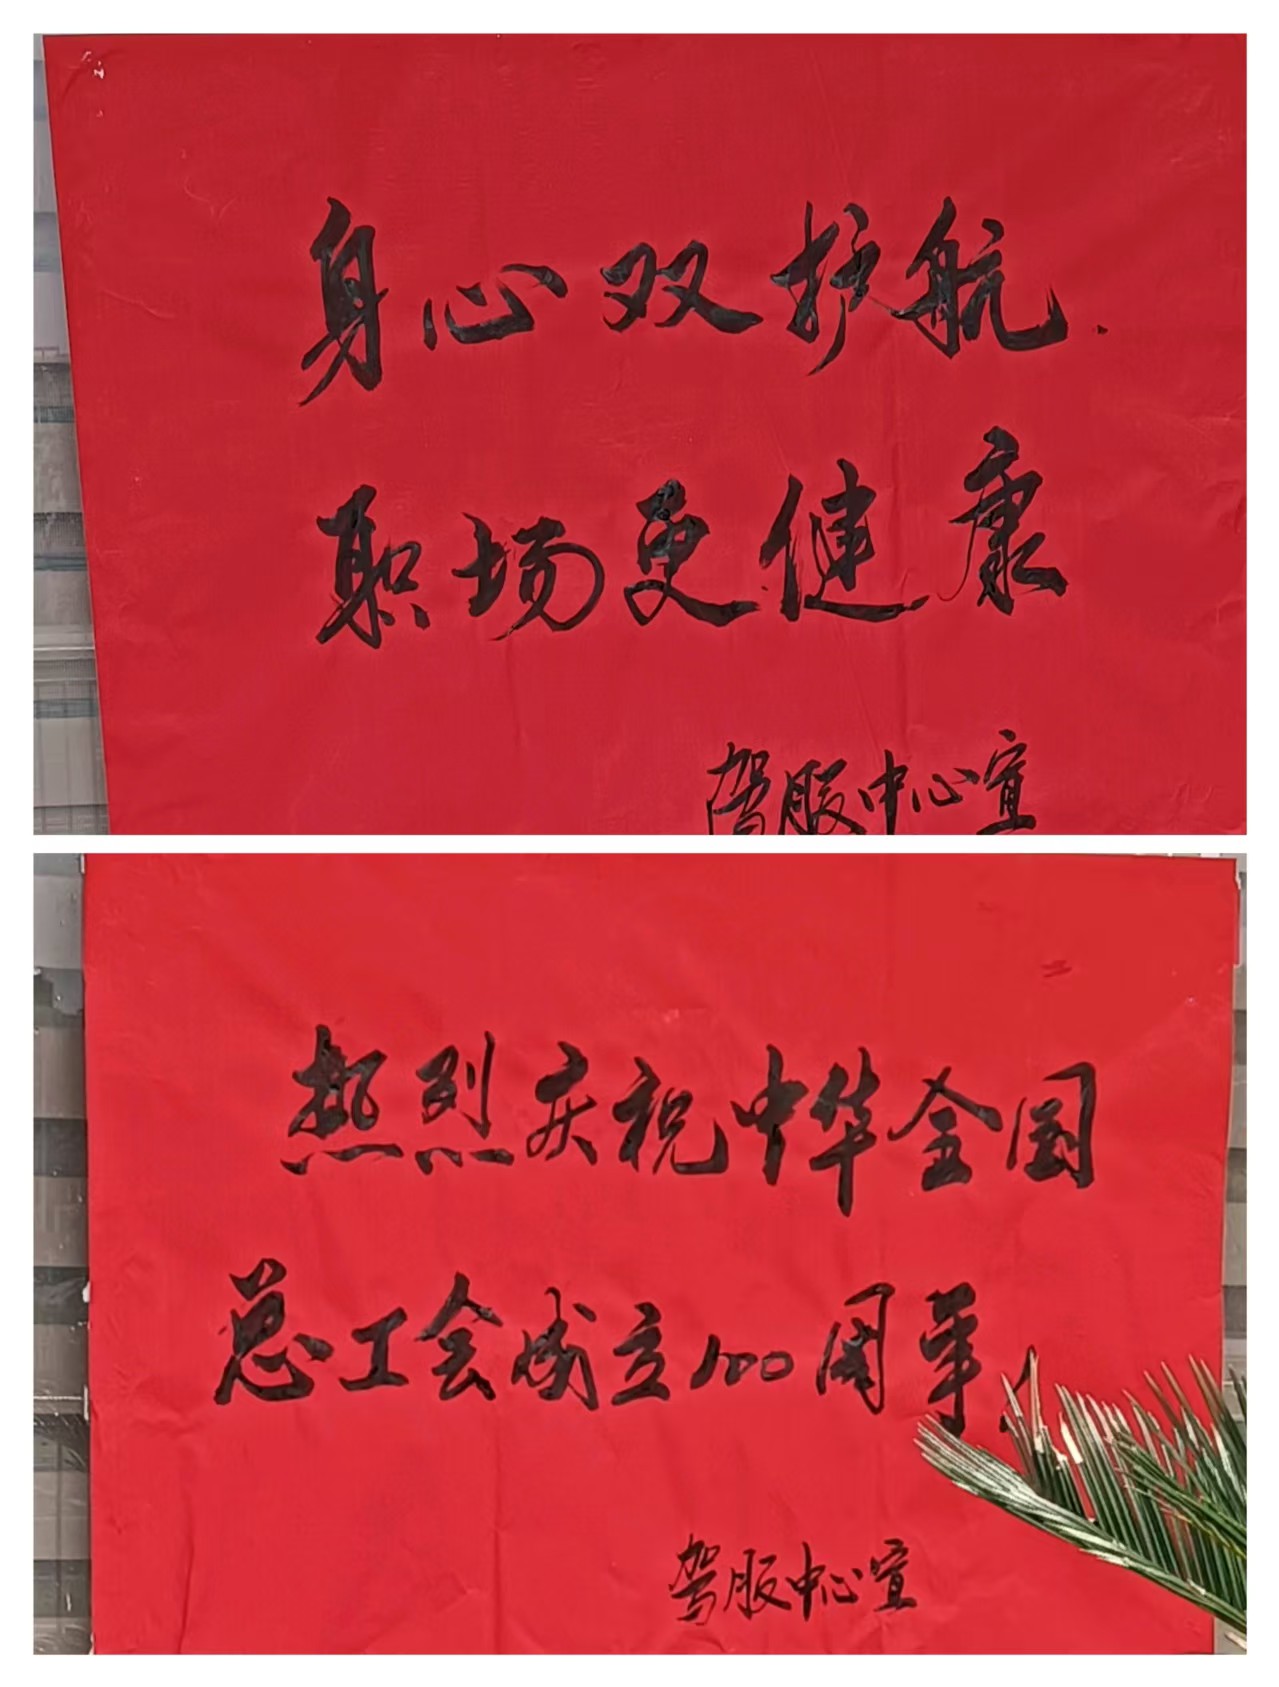 身心双护航.
职场更健康
驾服中心宣
热烈庆祝中华全国
总工会成立100周年
驾服中心宣